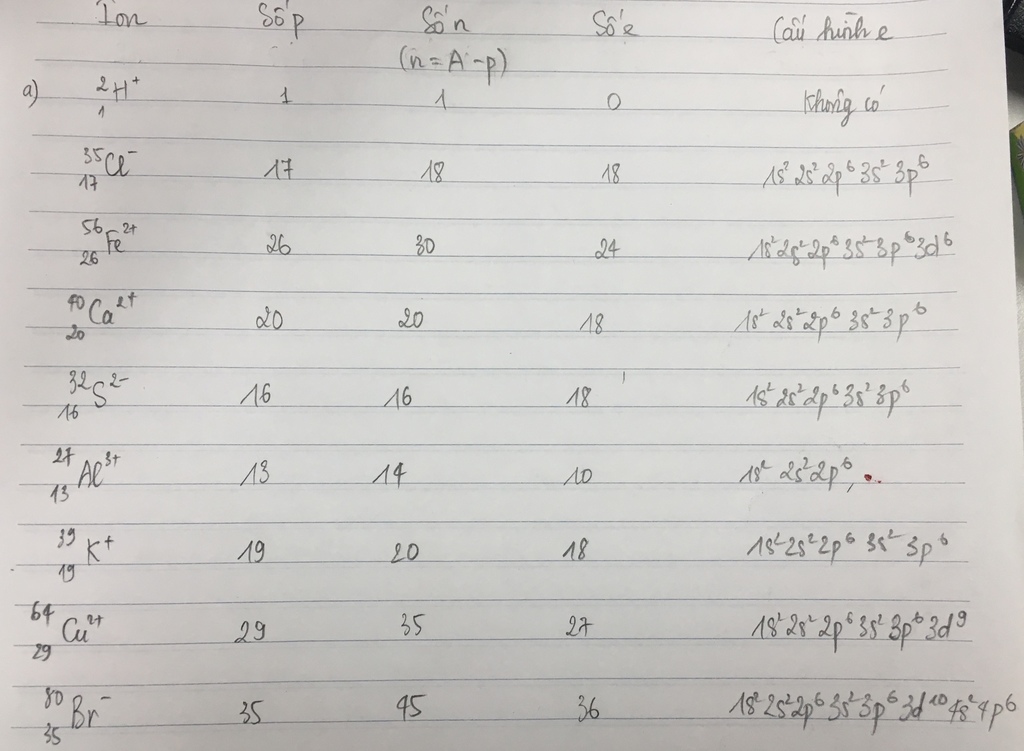 Ion Số p Số n Số e Cấu hình e
(n = A - p)
a) ²₁H⁺ 1 1 0 Không có
³⁵₁₇Cl⁻ 17 18 18 1s² 2s² 2p⁶ 3s² 3p⁶
⁵⁶₂₆Fe²⁺ 26 30 24 1s² 2s² 2p⁶ 3s² 3p⁶ 3d⁶
⁴⁰₂₀Ca²⁺ 20 20 18 1s² 2s² 2p⁶ 3s² 3p⁶
³²₁₆S²⁻ 16 16 18 1s² 2s² 2p⁶ 3s² 3p⁶
²⁷₁₃Al³⁺ 13 14 10 1s² 2s² 2p⁶,
³⁹₁₉K⁺ 19 20 18 1s² 2s² 2p⁶ 3s² 3p⁶
⁶⁴₂₉Cu²⁺ 29 35 27 1s² 2s² 2p⁶ 3s² 3p⁶ 3d⁹
⁸⁰₃₅Br⁻ 35 45 36 1s² 2s² 2p⁶ 3s² 3p⁶ 3d¹⁰ 4s² 4p⁶